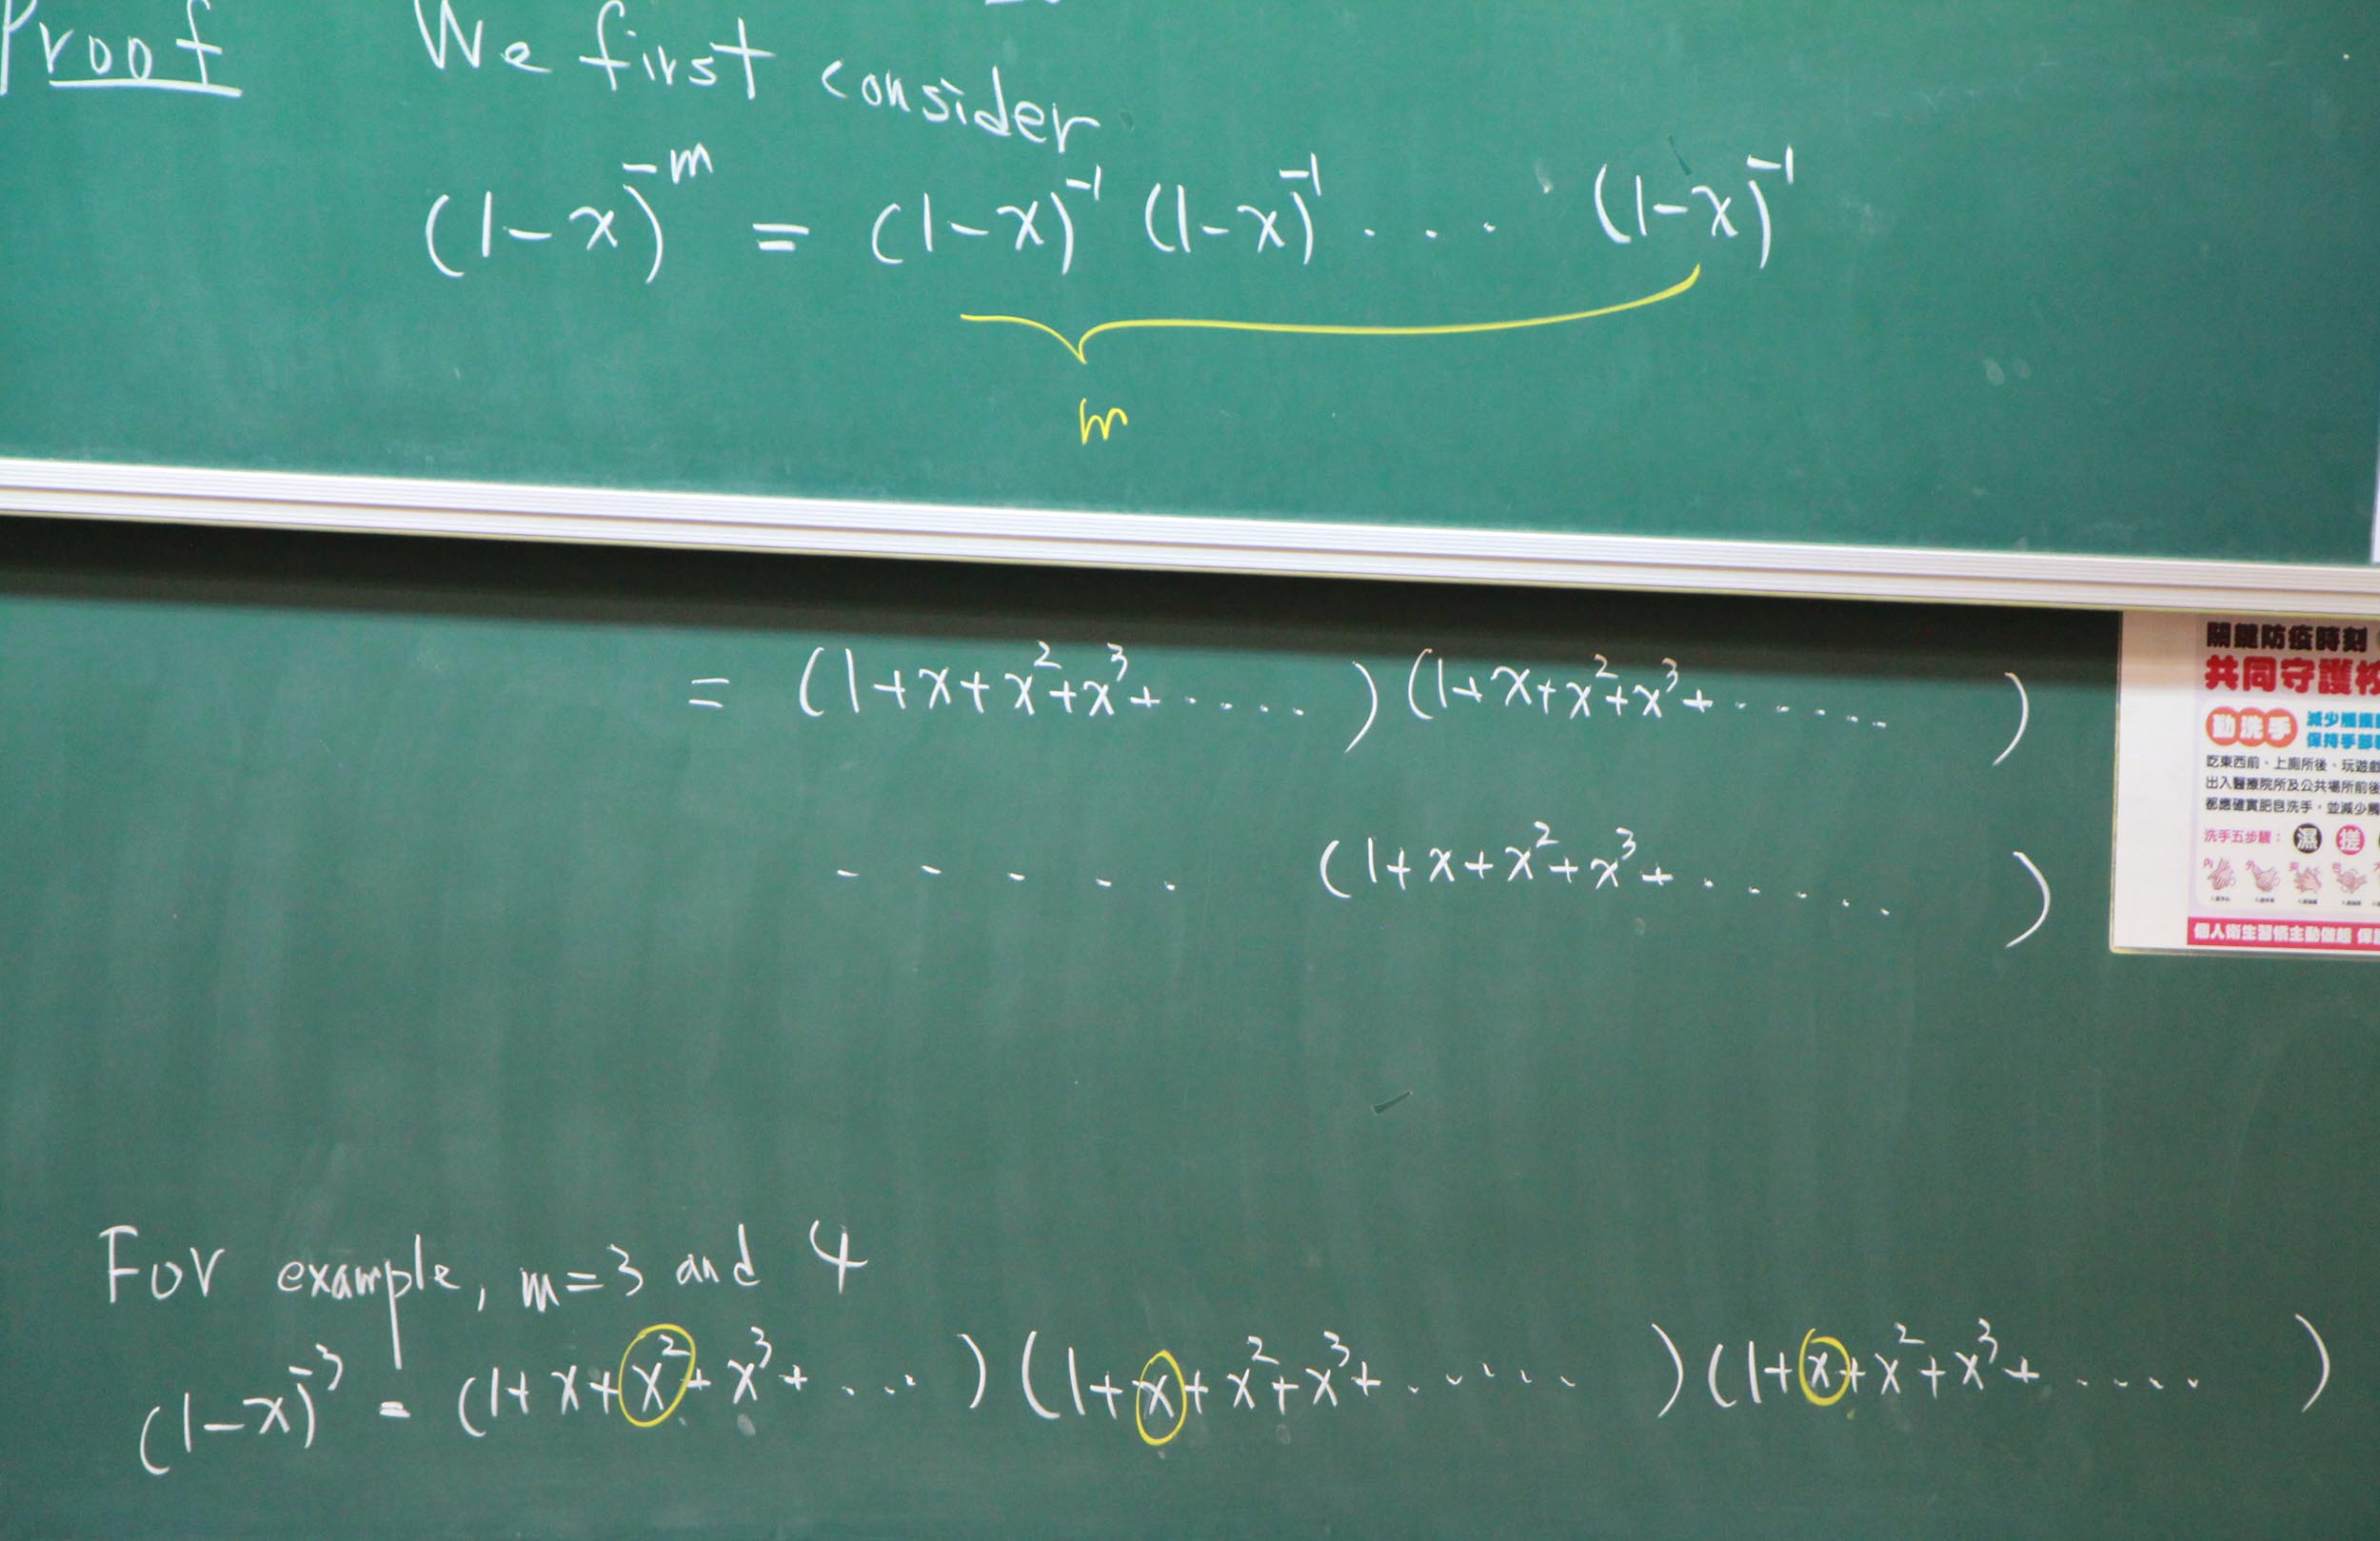 Proof We first consider
(1-x)^{-m} = (1-x)^{-1} (1-x)^{-1} . . . (1-x)^{-1}
m
= (1+x+x^2+x^3+.....)(1+x+x^2+x^3+......)
..... (1+x+x^2+x^3+......)
For example, m=3 and 4
(1-x)^{-3} = (1+x+x^2+x^3+....)(1+x+x^2+x^3+......)(1+x+x^2+x^3+.....)
關鍵防疫時刻
共同守護校
勤洗手 減少觸摸
保持手部
吃東西前、上廁所後、玩遊戲
出入醫療院所及公共場所前後
都應確實肥皂洗手，並減少觸
洗手五步驟： 濕 搓
內 外
個人衛生習慣主動做起 保